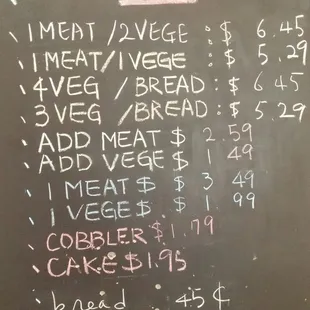 1 MEAT /2VEGE : $ 6.45
1 MEAT/1 VEGE : $ 5.29
4 VEG / BREAD : $ 6 45
3 VEG / BREAD : $ 5.29
ADD MEAT $ 2.59
ADD VEGE $ 1 49
1 MEAT $ $ 3 49
1 VEGE $ $ 1 99
COBBLER $1.79
CAKE $1.95
bread .45¢